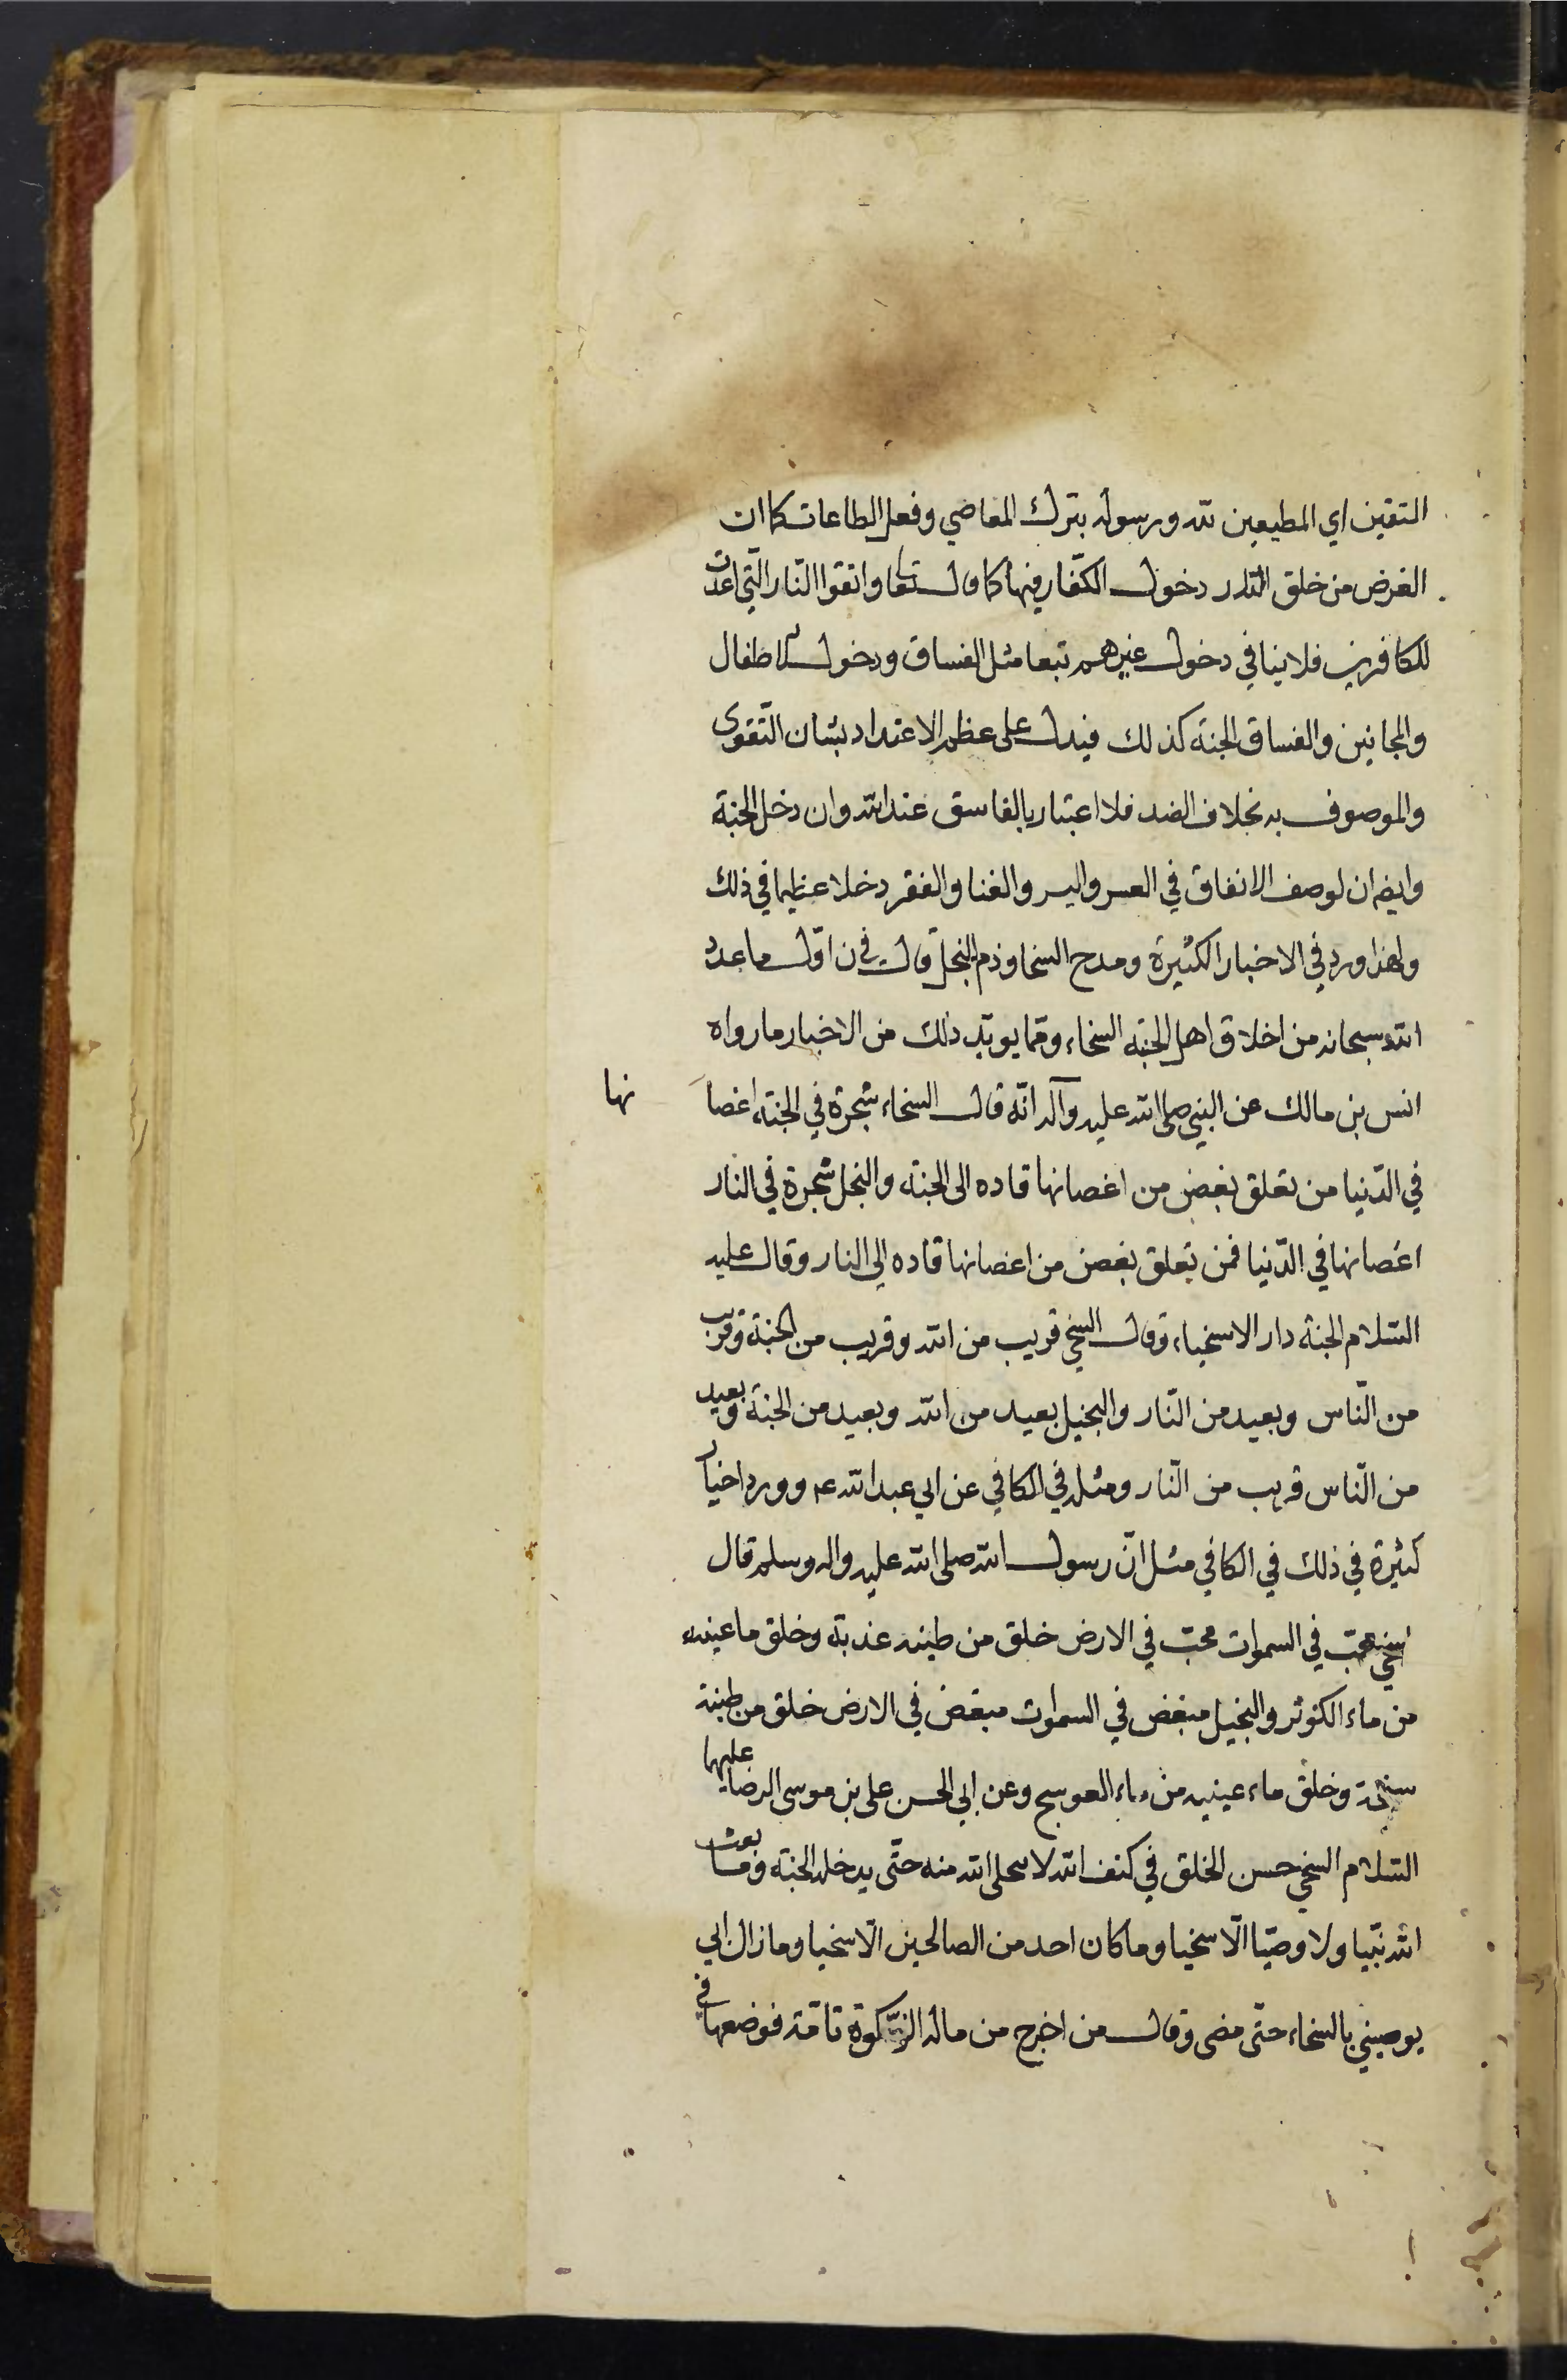 التقين اي المطيعين لله ورسوله بترك المعاصي وفعل الطاعات كما ان
الغرض من خلق النار دخول الكفّار فيها كما قال تعا واتقوا النّار الّتي اعدت
للكافرين فلا ينافي دخول غيرهم تبعا مثل الفساق ودخول الاطفال
والمجانين والفساق الجنة كذلك فيدل على عظم الاعتداد بشان التّقوى
والموصوف به بخلاف الضد فلا اعتبار بالفاسق عند الله وان دخل الجنة
وايضا ان لوصف الانفاق في العسر واليسر والغنا والفقر دخلا عظيما في ذلك
ولهذا ورد في الاخبار الكثيرة ومدح السخا وذم البخل قال في ن اوّل ما عدد
الله سبحانه من اخلاق اهل الجنة السخاء وممّا يويّد ذلك من الاخبار ما رواه
انس بن مالك عن النبي صلى الله عليه وآله انّه قال السخاء شجرة في الجنة اغصا نها
في الدّنيا من تعلق بغصن من اغصانها قاده الى الجنة والبخل شجرة في النار
اغصانها في الدّنيا فمن تعلق بغصن من اغصانها قاده الى النار وقال عليه
السّلام الجنة دار الاسخياء وقال السخي قريب من الله وقريب من الجنة وقريب
من النّاس وبعيد من النّار والبخيل بعيد من الله وبعيد من الجنة وبعيد
من النّاس قريب من النّار ومثله في الكافي عن ابي عبد الله ع وورد اخبار
كثيرة في ذلك في الكافي مثل انّ رسول الله صلى الله عليه واله وسلم قال
السخي محبّ في السموات محبّ في الارض خلق من طينه عذبة وخلق ما عينيه
من ماء الكوثر والبخيل مبغض في السموات مبغض في الارض خلق من طينة
سبخة وخلق ماء عينيه من ماء العوسج وعن ابي الحسن على بن موسى الرضا عليهما
السّلام السخي حسن الخلق في كنف الله لا يتخلى الله منه حتّى يدخله الجنة وما بعث
الله نبّيا ولا وصيّا الّا سخيا وما كان احد من الصالحين الّا سخيا وما زال ابي
يوصيني بالسخاء حتّى مضى وقال من اخرج من ماله الزّكوة تامّة فوضعها في